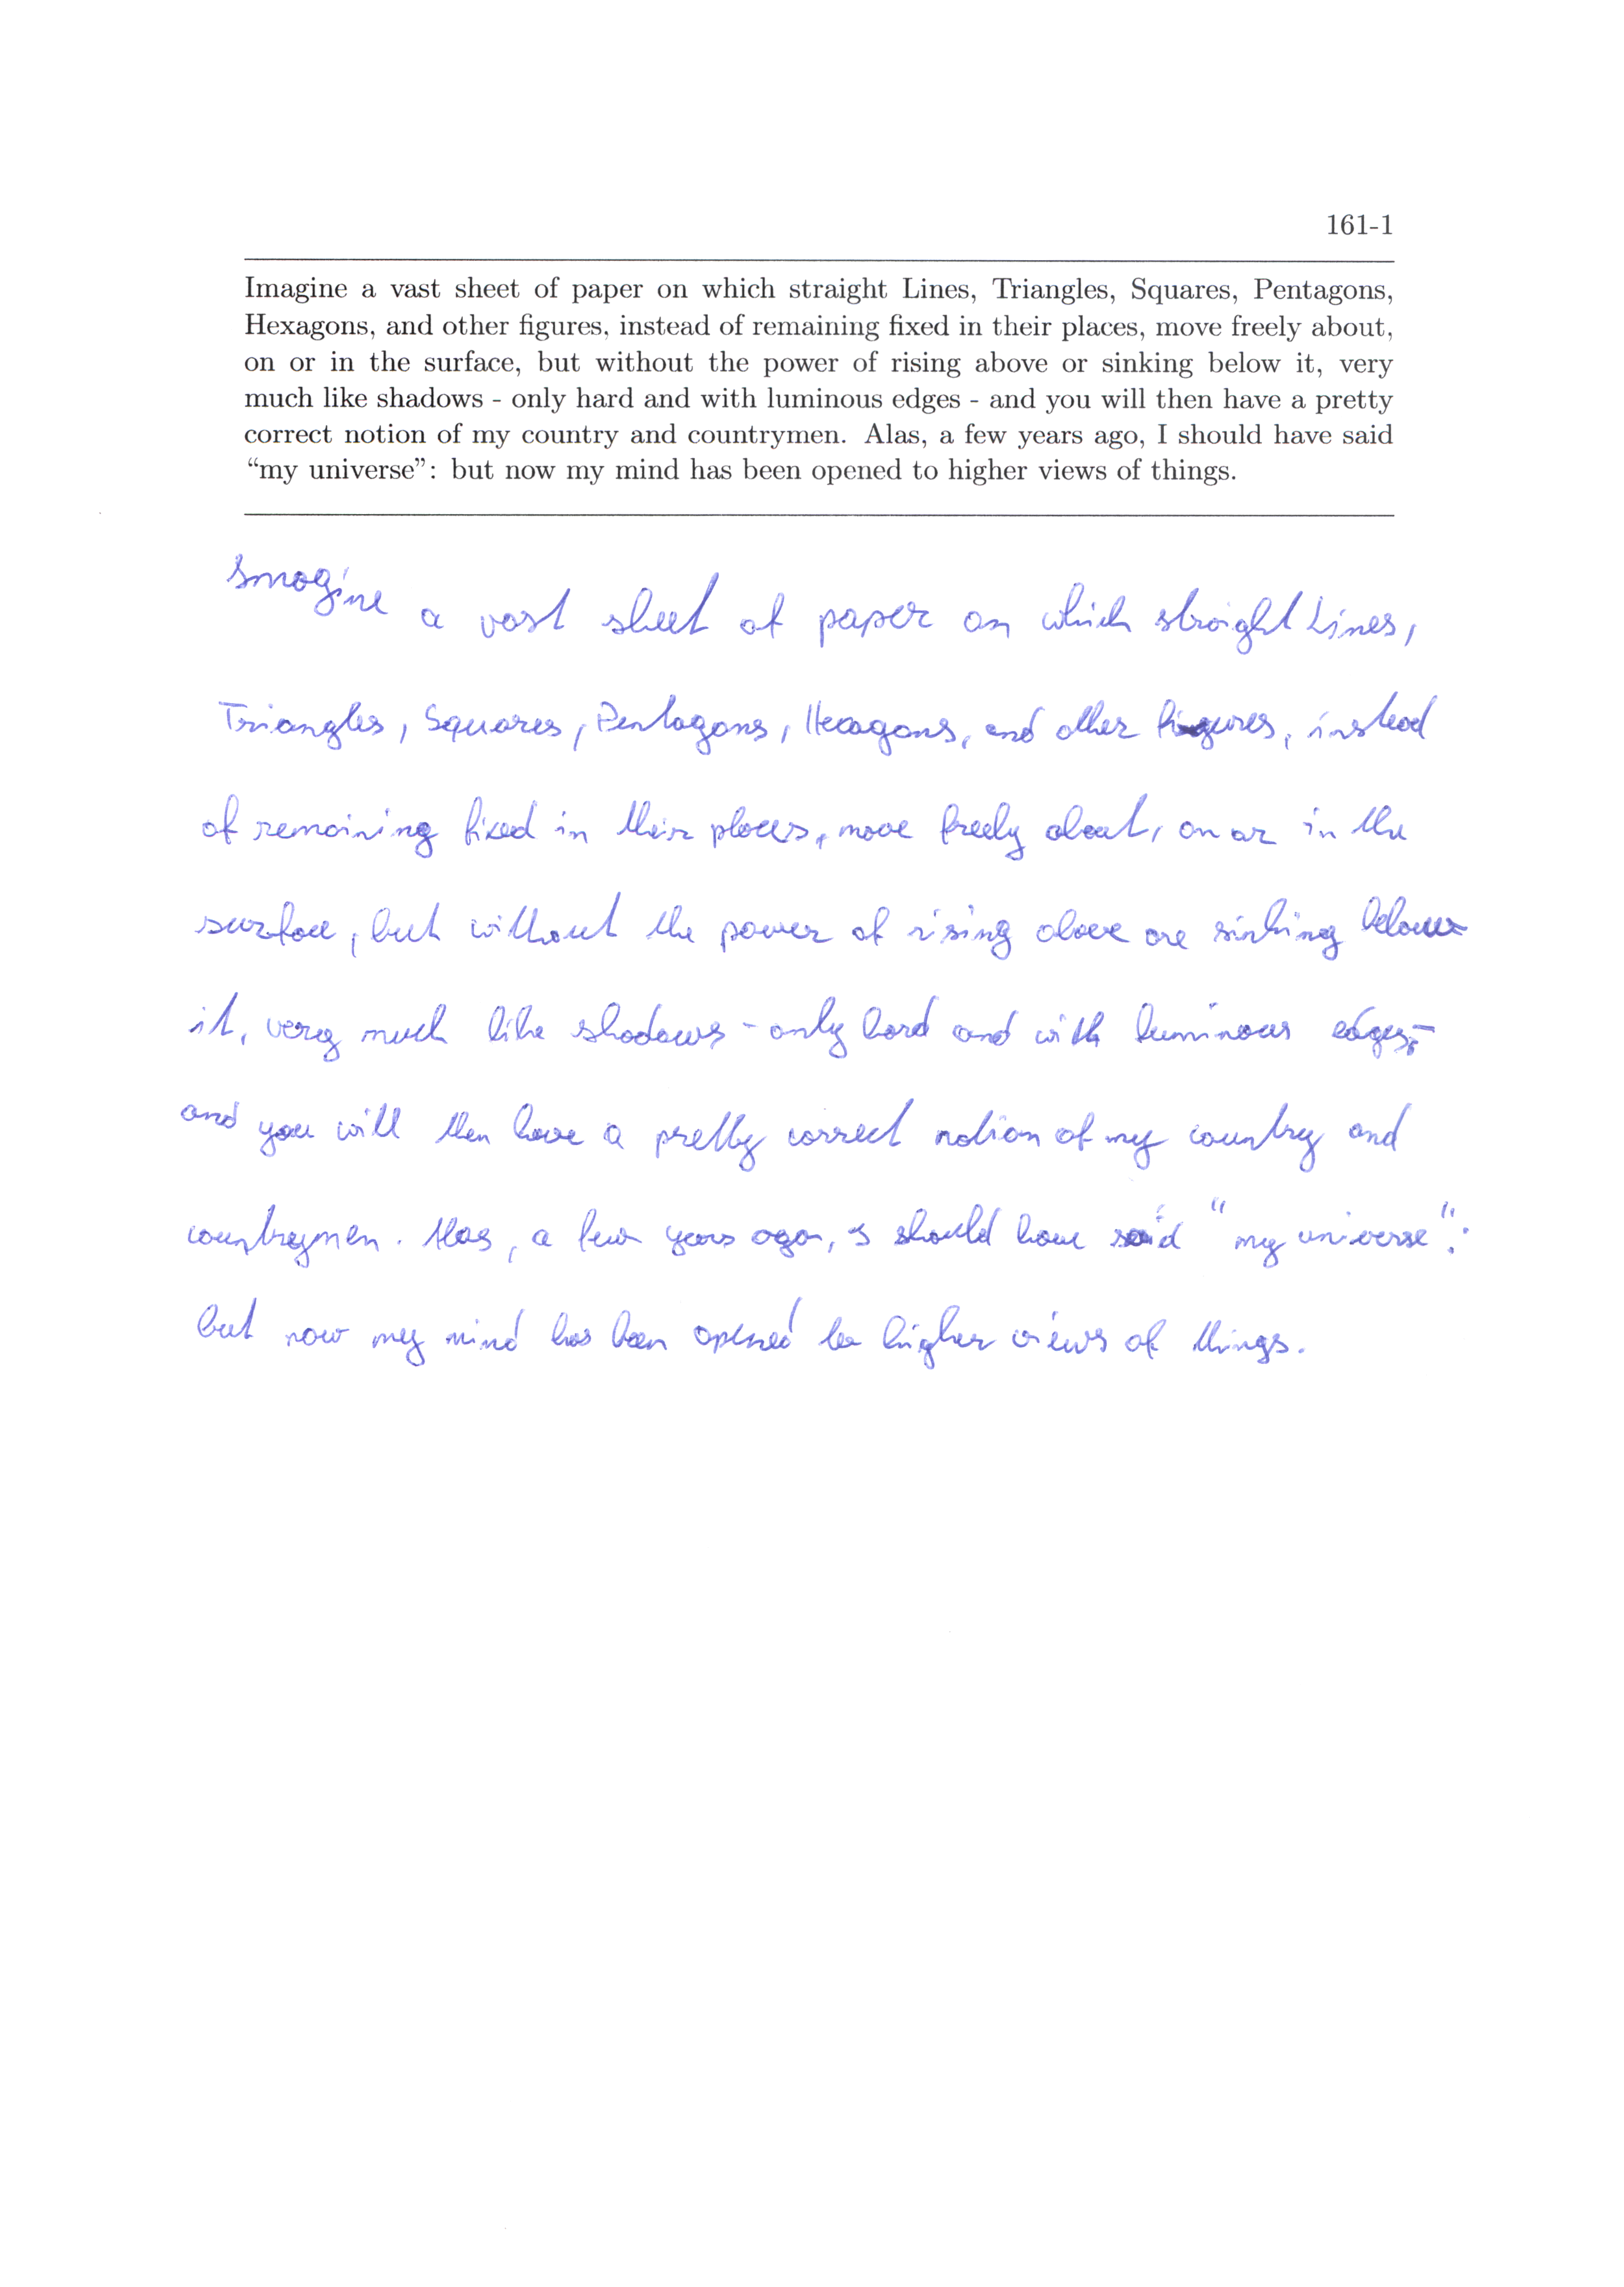 161-1
Imagine a vast sheet of paper on which straight Lines, Triangles, Squares, Pentagons,
Hexagons, and other figures, instead of remaining fixed in their places, move freely about,
on or in the surface, but without the power of rising above or sinking below it, very
much like shadows - only hard and with luminous edges - and you will then have a pretty
correct notion of my country and countrymen. Alas, a few years ago, I should have said
“my universe”: but now my mind has been opened to higher views of things.
Imagine a vast sheet of paper on which straight Lines,
Triangles, Squares, Pentagons, Hexagons, and other figures, instead
of remaining fixed in their places, move freely about, on or in the
surface, but without the power of rising above ore sinking below
it, very much like shadows - only hard and with luminous edges,-
and you will then have a pretty correct notion of my country and
countrymen. Alas, a few years ago, I should have said "my universe":
but now my mind has been opened to higher views of things.